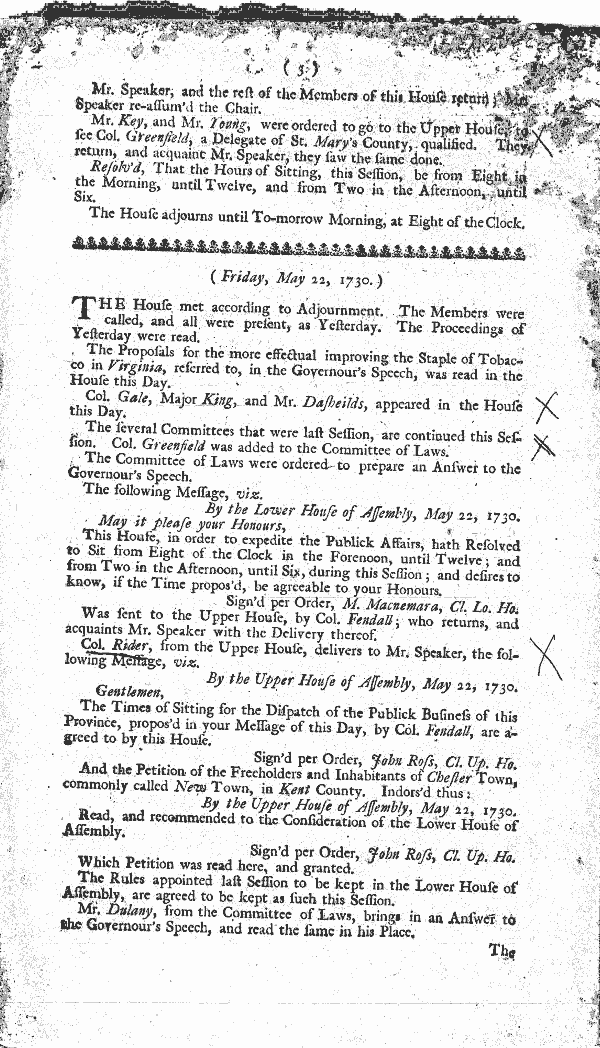 ( 5 )
Mr. Speaker, and the reſt of the Members of this Houſe return; Mr.
Speaker re-aſſum'd the Chair.
Mr. Key, and Mr. Young, were ordered to go to the Upper Houſe, to
ſee Col. Greenfield, a Delegate of St. Mary's County, qualified. They
return, and acquaint Mr. Speaker, they ſaw the ſame done.
Reſolv'd, That the Hours of Sitting, this Seſſion, be from Eight in
the Morning, until Twelve, and from Two in the Afternoon, until
Six.
The Houſe adjourns until To-morrow Morning, at Eight of the Clock.
( Friday, May 22, 1730. )
THE Houſe met according to Adjournment. The Members were
called, and all were preſent, as Yeſterday. The Proceedings of
Yeſterday were read.
The Propoſals for the more effectual improving the Staple of Tobac-
co in Virginia, referred to, in the Governour's Speech, was read in the
Houſe this Day.
Col. Gale, Major King, and Mr. Daſheilds, appeared in the Houſe
this Day.
The ſeveral Committees that were laſt Seſſion, are continued this Seſ-
ſion. Col. Greenfield was added to the Committee of Laws.
The Committee of Laws were ordered to prepare an Anſwer to the
Governour's Speech.
The following Meſſage, viz.
By the Lower Houſe of Aſſembly, May 22, 1730.
May it pleaſe your Honours,
This Houſe, in order to expedite the Publick Affairs, hath Reſolved
to Sit from Eight of the Clock in the Forenoon, until Twelve; and
from Two in the Afternoon, until Six, during this Seſſion; and deſires to
know, if the Time propos'd, be agreeable to your Honours.
Sign'd per Order, M. Macnemara, Cl. Lo. Ho.
Was ſent to the Upper Houſe, by Col. Fendall; who returns, and
acquaints Mr. Speaker with the Delivery thereof.
Col. Rider, from the Upper Houſe, delivers to Mr. Speaker, the fol-
lowing Meſſage, viz.
By the Upper Houſe of Aſſembly, May 22, 1730.
Gentlemen,
The Times of Sitting for the Diſpatch of the Publick Buſineſs of this
Province, propos'd in your Meſſage of this Day, by Col. Fendall, are a-
greed to by this Houſe.
Sign'd per Order, John Roſs, Cl. Up. Ho.
And the Petition of the Freeholders and Inhabitants of Cheſter Town,
commonly called New Town, in Kent County. Indors'd thus:
By the Upper Houſe of Aſſembly, May 22, 1730.
Read, and recommended to the Conſideration of the Lower Houſe of
Aſſembly.
Sign'd per Order, John Roſs, Cl. Up. Ho.
Which Petition was read here, and granted.
The Rules appointed laſt Seſſion to be kept in the Lower Houſe of
Aſſembly, are agreed to be kept as ſuch this Seſſion.
Mr. Dulany, from the Committee of Laws, brings in an Anſwer to
the Governour's Speech, and read the ſame in his Place.
The